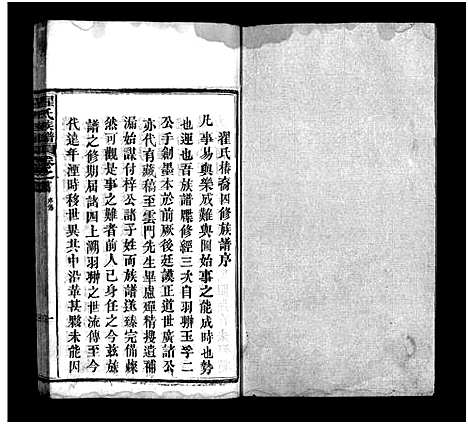 翟氏椿裔四修族譜序
凡事易與樂成難與圖始事之能成時也勢
也運也吾族譜牒修經三次自羽聯玉孚二
公手創墨本於前厥後廷謨正道世廣諸公
亦代有藏稿至雲門先生畢慮殫精搜遺補
漏始謀付梓公諸子姓而族譜遂臻完備燦
然可觀是事之難者前人已身任之今茲族
譜之修期屆諸四上溯羽聯之世流傳至今
代遠年湮時移世異其中沿革甚夥未能因
翟氏族譜 卷之首